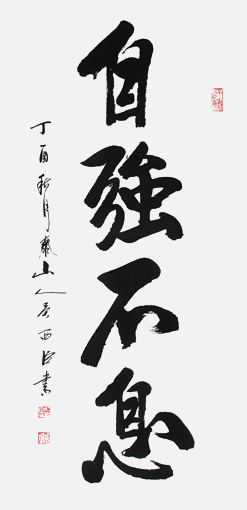 自強不息
丁酉秋月
山人
西
書